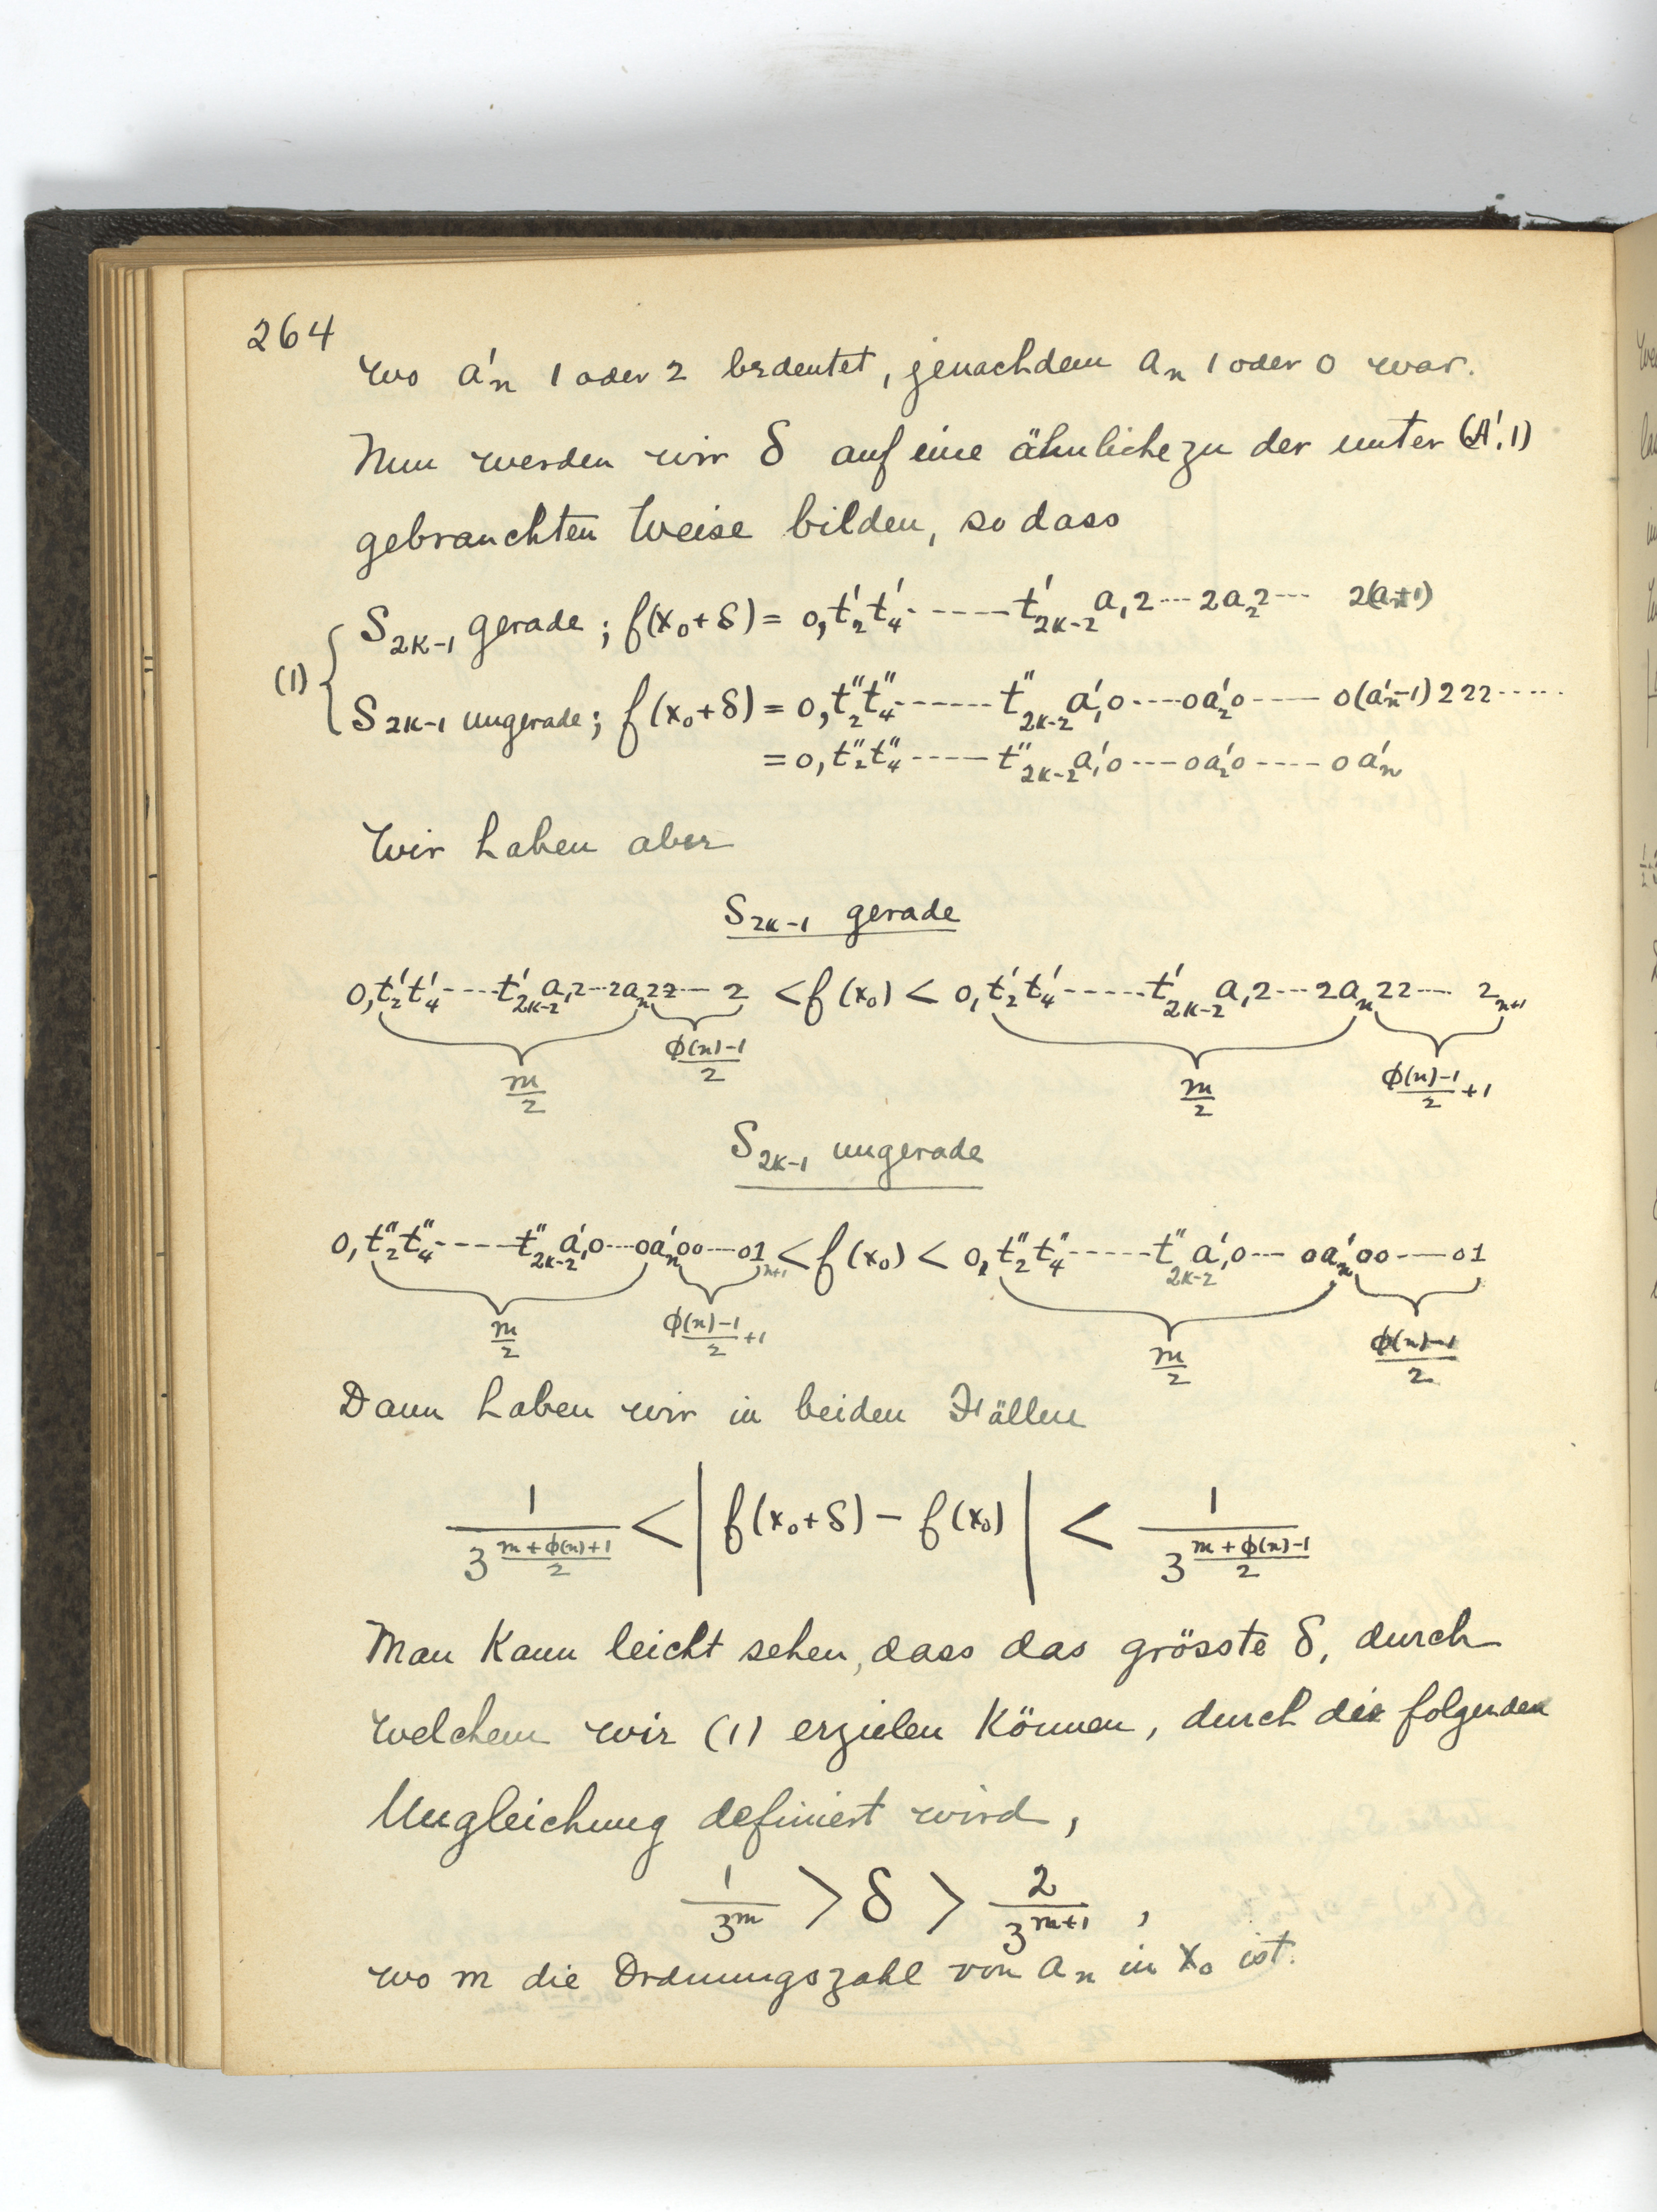 264
wo a'ₙ 1 oder 2 bedeutet, jenachdem aₙ 1 oder 0 war.
Nun werden wir δ auf eine ähnliche zu der unter (A',1)
gebrauchten Weise bilden, so dass
S₂ₖ₋₁ gerade; f(x₀+δ) = 0,t'₂t'₄------t'₂ₖ₋₂a₁2---2a₂2--- 2(aₙ+1)
(1)
S₂ₖ₋₁ ungerade; f(x₀+δ) = 0,t"₂t"₄------t"₂ₖ₋₂a'₁0----0a'₂0---- 0(a'ₙ-1)222-----
= 0,t"₂t"₄-----t"₂ₖ₋₂a'₁0---0a'₂0----0a'ₙ
Wir haben aber
S₂ₖ₋₁ gerade
0,t'₂t'₄----t'₂ₖ₋₂a₁2--2aₙ22--- 2 < f(x₀) < 0,t'₂t'₄-----t'₂ₖ₋₂a₁2---2aₙ22--- 2ₙ₊₁
m/2 (φ(n)-1)/2 m/2 (φ(n)-1)/2 +1
S₂ₖ₋₁ ungerade
0,t"₂t"₄-----t"₂ₖ₋₂a'₁0---0a'ₙ00---01ₙ₊₁ < f(x₀) < 0,t"₂t"₄-----t"₂ₖ₋₂a'₁0--- 0a'ₙ00----01
m/2 (φ(n)-1)/2 +1 m/2 (φ(n)-1)/2
Dann haben wir in beiden Fällen
1/3^((m+φ(n)+1)/2) < | f(x₀+δ) - f(x₀) | < 1/3^((m+φ(n)-1)/2)
Man kann leicht sehen, dass das grösste δ, durch
welchem wir (1) erzielen können, durch die folgenden
Ungleichung definiert wird,
1/3^m > δ > 2/3^(m+1) ,
wo m die Ordnungszahl von aₙ in x₀ ist.